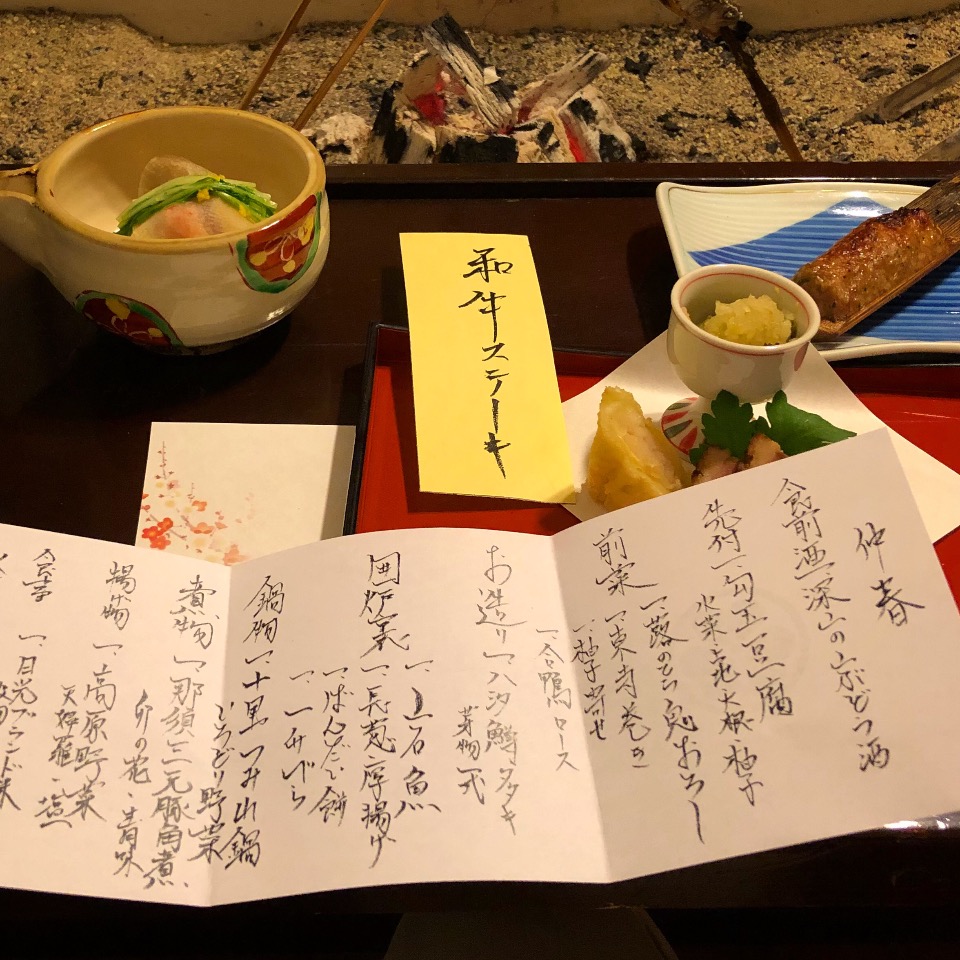 和牛ステーキ
仲春
食前酒 深山の山ぶどう酒
先付 一、勾玉豆腐
水菜 北大根 柚子
一、蕗のとう 鬼おろし
前菜 一、東寺巻き
一、柚子寄せ
一、合鴨ロース
お造り 一、八汐鱒タタキ
芽物一式
囲炉裏 一、岩魚
一、長葱 厚揚げ
一、ばんだい餅
一、一みべら
鍋物 一、十里つみれ鍋
いろどり野菜
煮物 一、那須三元豚角煮
卯の花 青味
揚げ物 一、高原野菜
天婦羅 塩
食事 一、日光ブランド米